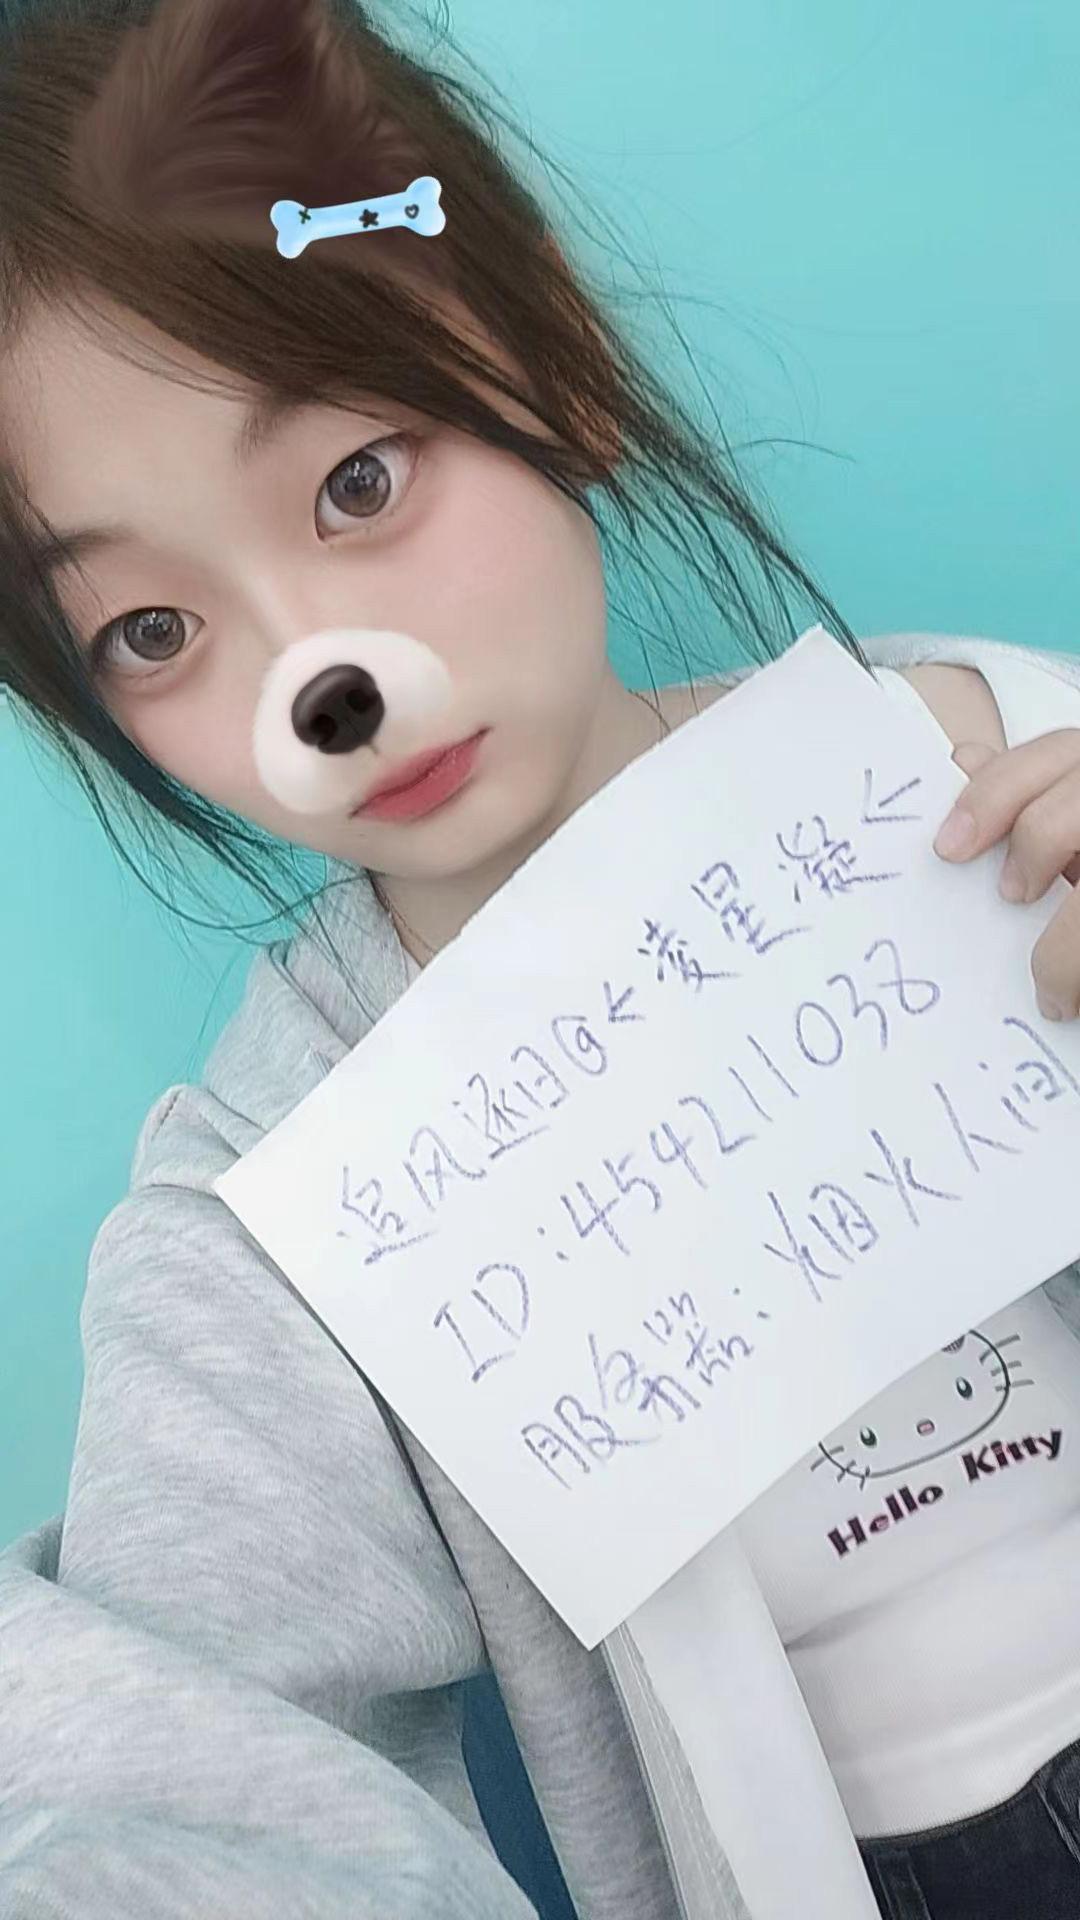 追风逐日@<凌星凝<
ID:454211038
服务器:烟火人间
Hello Kitty